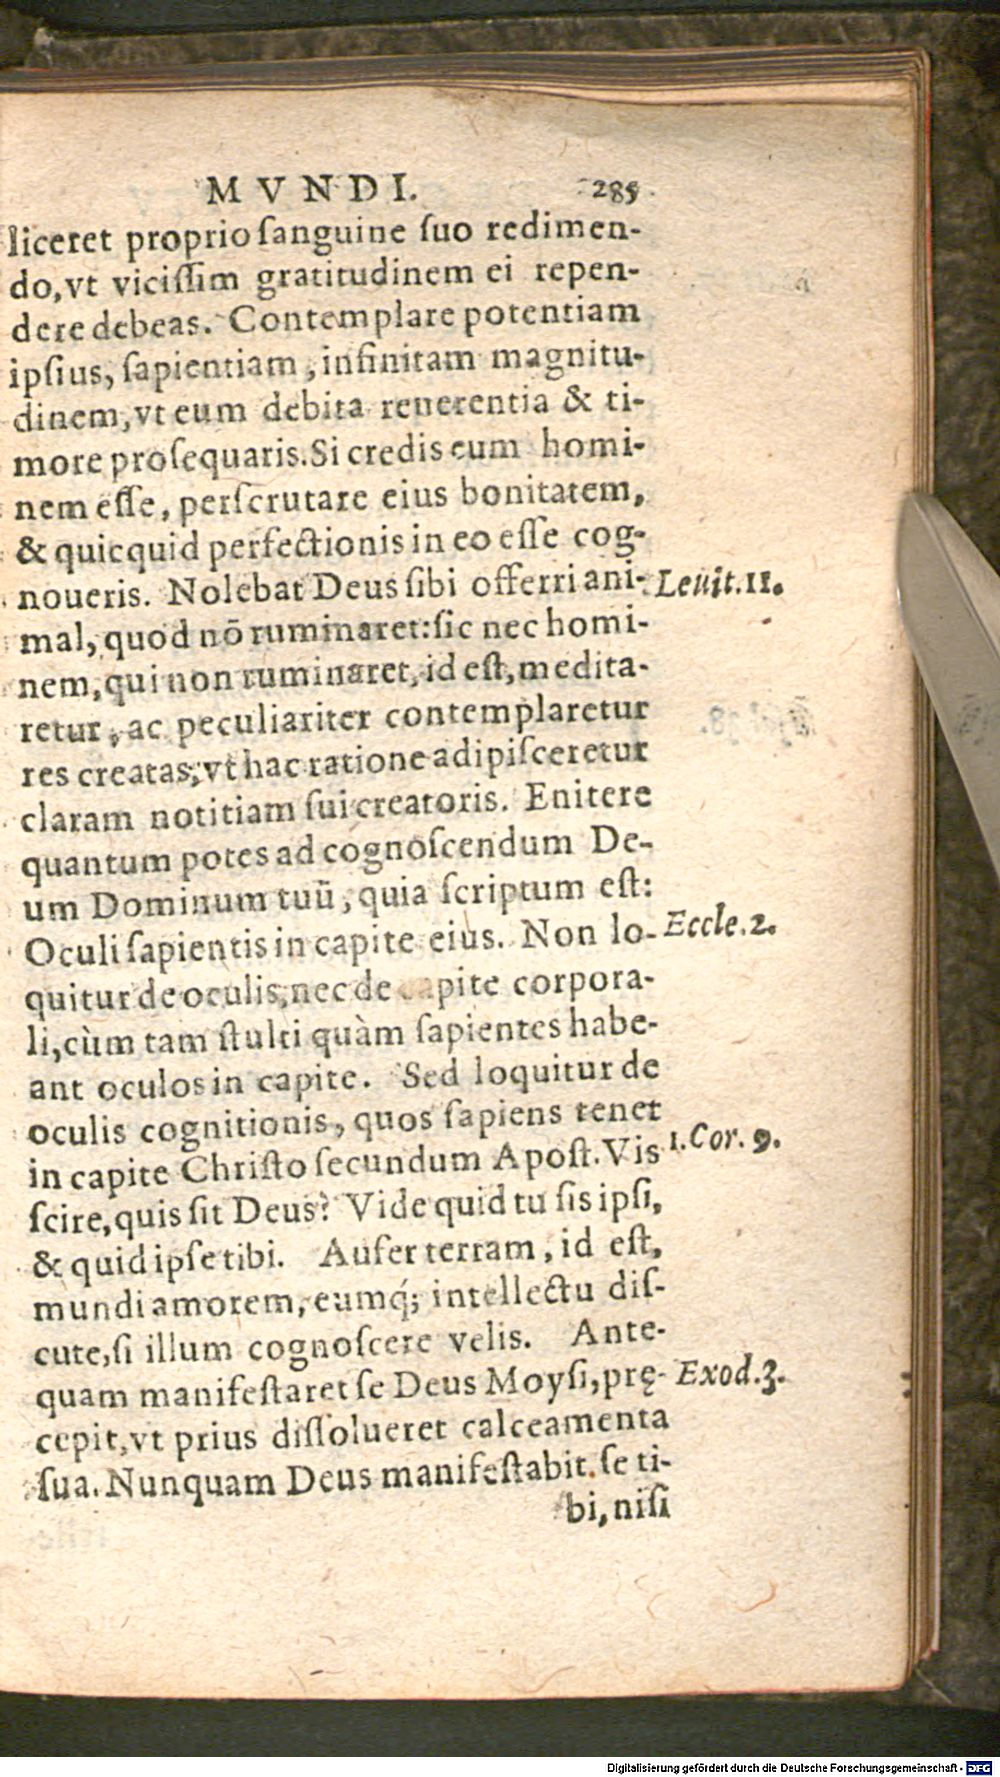 MVNDI. 285
liceret proprio ſanguine ſuo redimen-
do, vt viciſſim gratitudinem ei repen-
dere debeas. Contemplare potentiam
ipſius, ſapientiam, infinitam magnitu-
dinem, vt eum debita reuerentia & ti-
more proſequaris. Si credis eum homi-
nem eſſe, perſcrutare eius bonitatem,
& quicquid perfectionis in eo eſſe cog-
noueris. Nolebat Deus ſibi offerri ani- Leuit. 11.
mal, quod nõ ruminaret: ſic nec homi-
nem, qui non ruminaret, id eſt, medita-
retur, ac peculiariter contemplaretur
res creatas, vt hac ratione adipiſceretur
claram notitiam ſui creatoris. Enitere
quantum potes ad cognoſcendum De-
um Dominum tuũ, quia ſcriptum eſt:
Oculi ſapientis in capite eius. Non lo- Eccle. 2.
quitur de oculis, nec de capite corpora-
li, cùm tam ſtulti quàm ſapientes habe-
ant oculos in capite. Sed loquitur de
oculis cognitionis, quos ſapiens tenet
in capite Chriſto ſecundum Apoſt. Vis 1. Cor. 9.
ſcire, quis ſit Deus? Vide quid tu ſis ipſi,
& quid ipſe tibi. Aufer terram, id eſt,
mundi amorem, eumq́; intellectu diſ-
cute, ſi illum cognoſcere velis. Ante-
quam manifeſtaret ſe Deus Moyſi, prę- Exod. 3.
cepit, vt prius diſſolueret calceamenta
ſua. Nunquam Deus manifeſtabit ſe ti-
bi, niſi
Digitalisierung gefördert durch die Deutsche Forschungsgemeinschaft - DFG